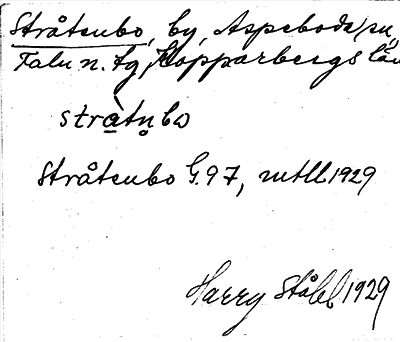 Stråtenbo, by, Aspeboda sn,
Falu n. tg, Kopparbergs län
stràtn̥bo
Stråtenbo G.97, mtll 1929
Harry Ståhl 1929